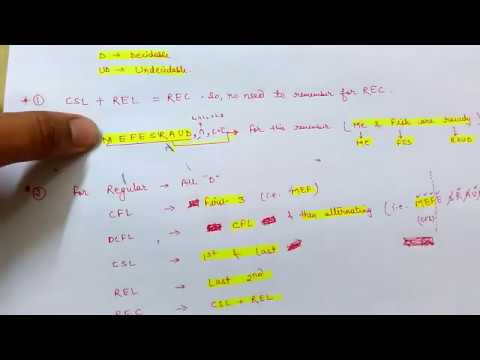 D → Decidable
UD → Undecidable.
* ① CSL + REL = REC. So, no need to remember for REC.
MEFESRAUD → For this remember (Me & Fes are ready
→ ME → FES → RAUD
* ② For Regular → All "D"
CFL → First-3 (i.e. MEF)
DCFL → CFL & then alternating (i.e. MEFE
CSL → 1st & Last
REL → Last 2nd
REC → CSL + REL